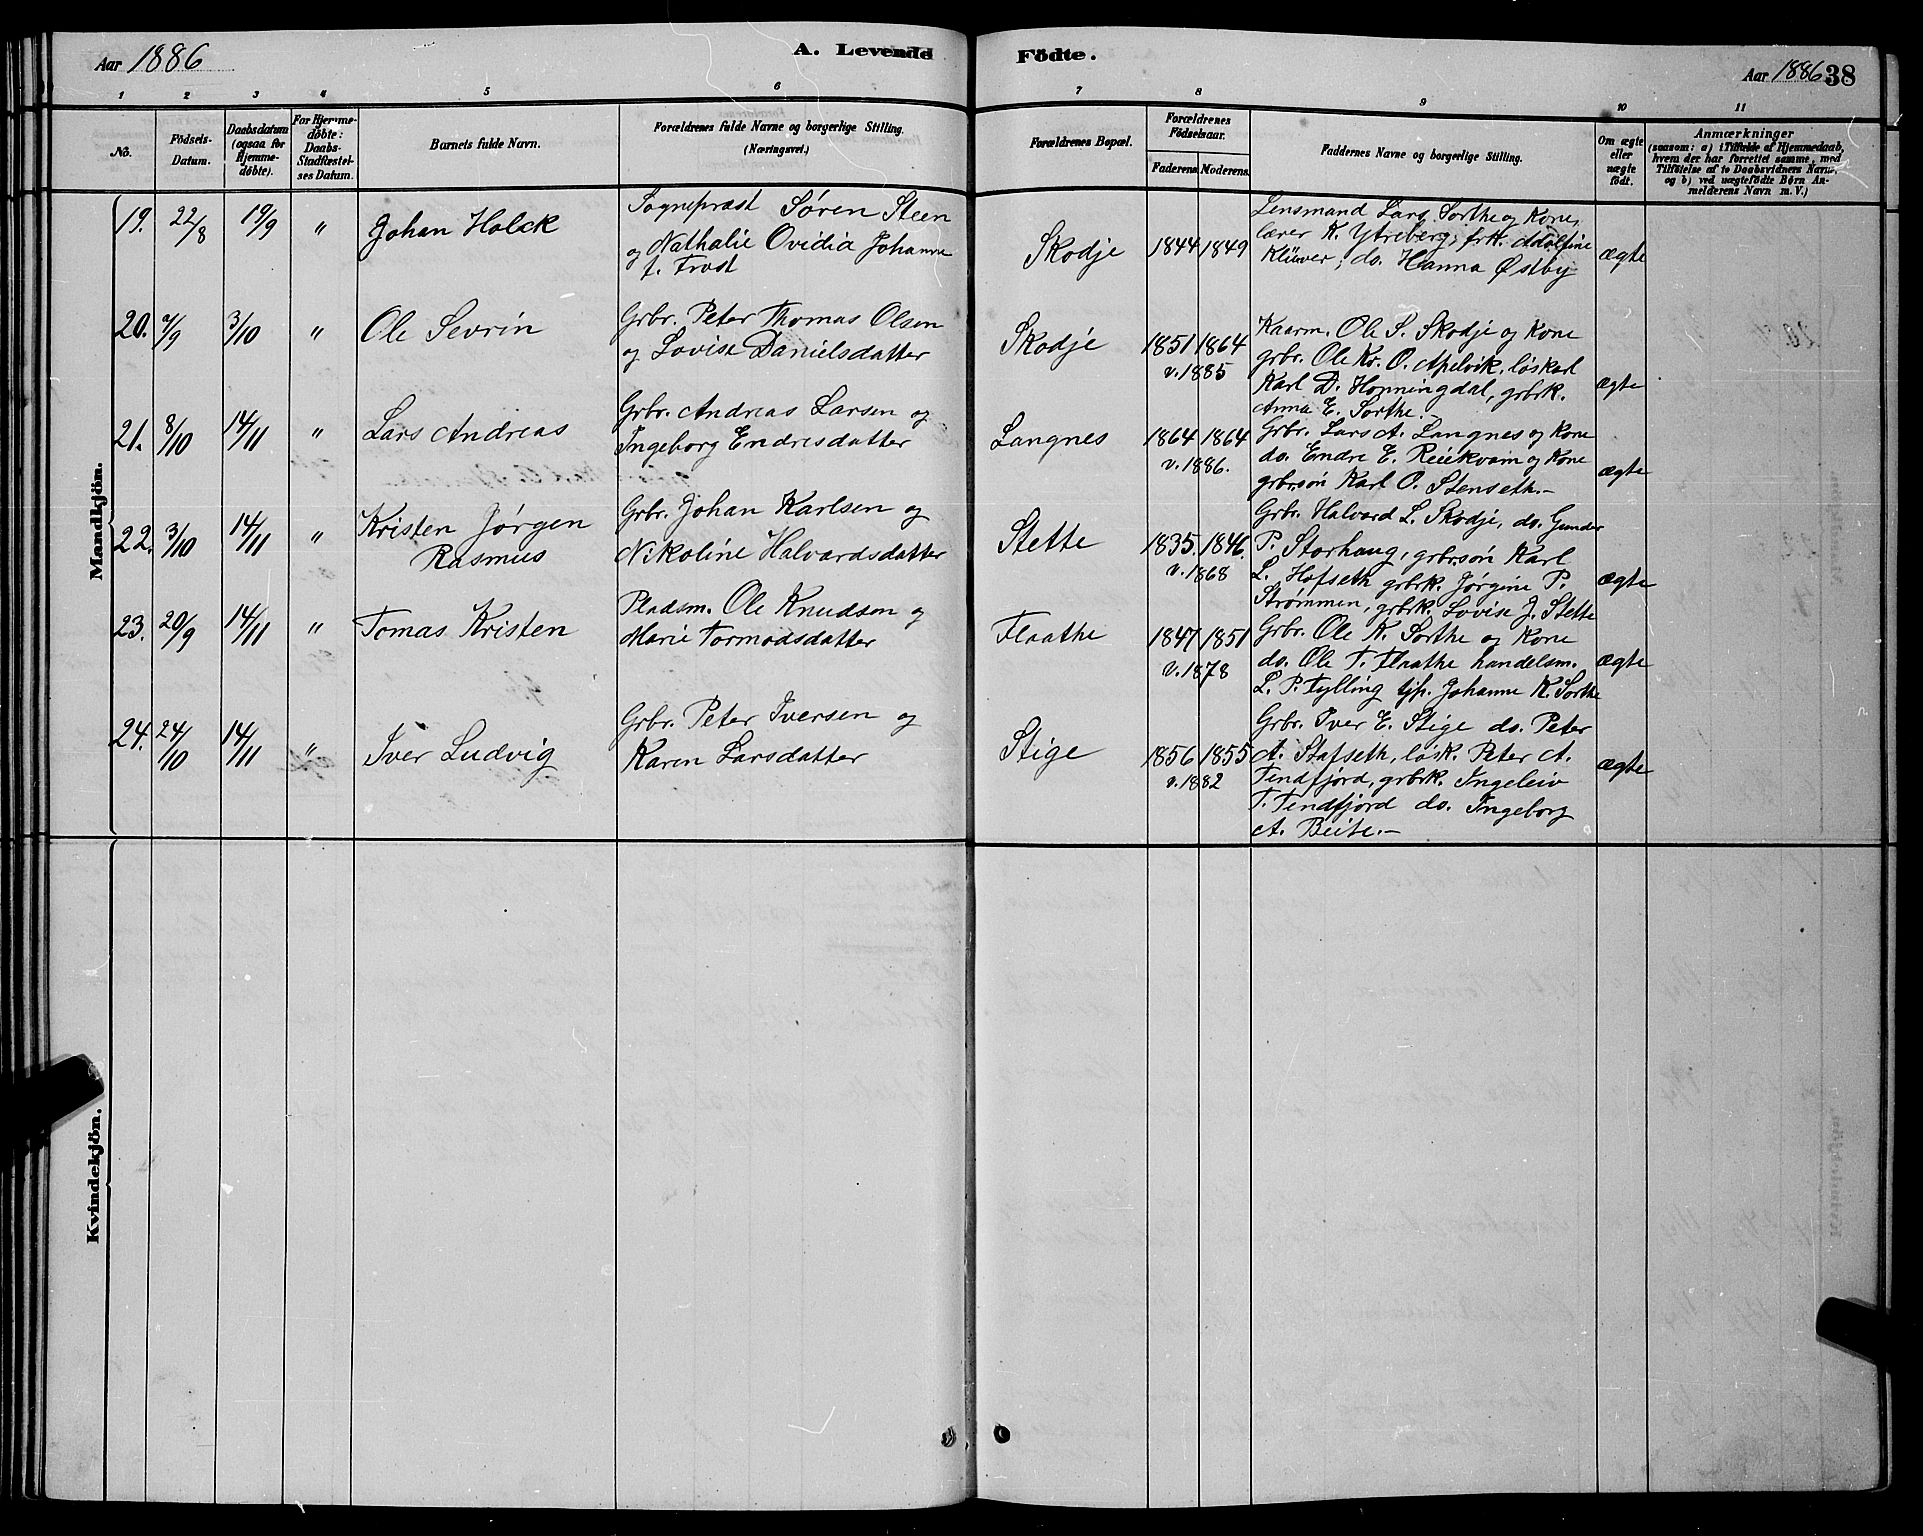 Aar 1886
A. Levende Födte.
Aar 1886 38
1 2 3 4 5 6 7 8 9 10 11
No.
Födsels-Datum.
Daabsdatum (ogsaa for Hjemmedöbte).
For Hjemmedöbte: Daabs-Stadfæstelses Datum.
Barnets fulde Navn.
Forældrenes fulde Navne og borgerlige Stilling.
(Næringsvei.)
Forældrenes Bopæl.
Forældrenes Födselsaar.
Faderens. Moderens.
Faddernes Navne og borgerlige Stilling.
Om ægte eller uægte födt.
Anmærkninger
(saasom: a) i Tilfælde af Hjemmedaab, hvem der har forrettet samme, med Tilföielse af to Daabsvidners Navne, og b) ved uægtefödte Börn Anmelderens Navn m. V.)
Mandkjön.
19. 22/8 19/9 " Johan Holck
Sognepræst Søren Steen
og Nathalie Ovidia Johanne
f. Frost
Skodje 1844 1849
Lensmand Lars Sorthe og Kone,
lærer K. Ytreberg, frk. Adolfine
Klüwer, do. Hanna Østby
ægte
20. 7/9 3/10 " Ole Sevrin
Grbr. Peter Thomas Olsen
og Lovise Danielsdatter
Skodje 1851 1864
v. 1885
Kaarm. Ole S. Skodje og Kone
grbr. Ole Kr. O. Apelvik, löskarl
Karl D. Honningdal, grbrk.
Anna E. Sorthe.
ægte
21. 8/10 14/11 " Lars Andreas
Grbr. Andreas Larsen og
Ingeborg Endresdatter
Langnes 1864 1864
v. 1886.
Grbr. Lars A. Langnes og Kone
do. Endre E. Reiekvam og Kone
grbrsön Karl O. Stenseth.-
ægte
22. 3/10 14/11 " Kristen Jørgen
Rasmus
Grbr. Johan Karlsen og
Nikoline Halvardsdatter
Stette 1835. 1846.
v. 1868
Grbr. Halvard L. Skodje, do. Gunder
P. Storhaug, grbrsön Karl
L. Hofseth grbrk. Jørgine P.
Strømmen, grbrk. Lovise J. Stette
ægte
23. 20/9 14/11 " Tomas Kristen
Pladsm. Ole Knudsen og
Marie Tormodsdatter
Flaathe 1847 1851
v. 1878
Grbr. Ole K. Sorthe og Kone
do. Ole T. Flaathe handelsm.
L. P. Fylling tjp. Johanne K. Sorthe
ægte
24. 24/10 14/11 " Iver Ludvig
Grbr. Peter Iversen og
Karen Larsdatter
Stige 1856 1855
v. 1882
Grbr. Iver E. Stige do. Peter
A. Stafseth, lösk. Peter A.
Tendfjord, grbrk. Ingeleiv
T. Tendfjord do. Ingeborg
A. Beite.-
ægte
Kvindekjön.